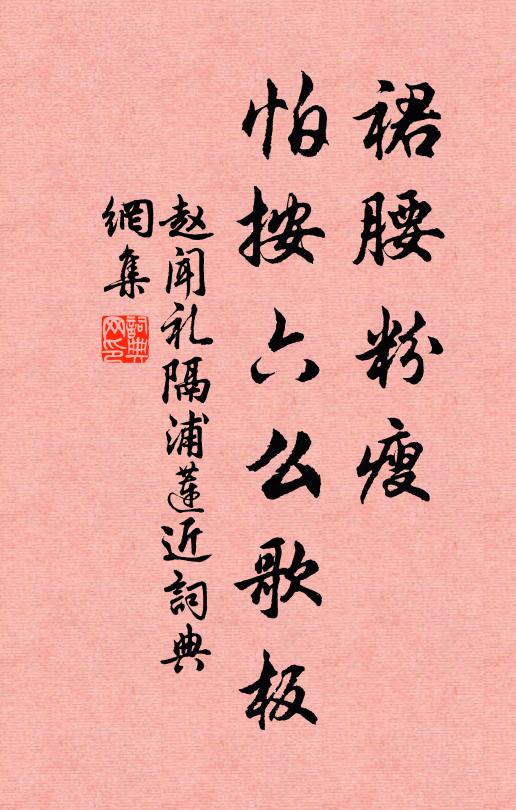 裙腰粉瘦
怕按六么歌板
赵闻礼隔浦莲近詞典
網集
詞典网印